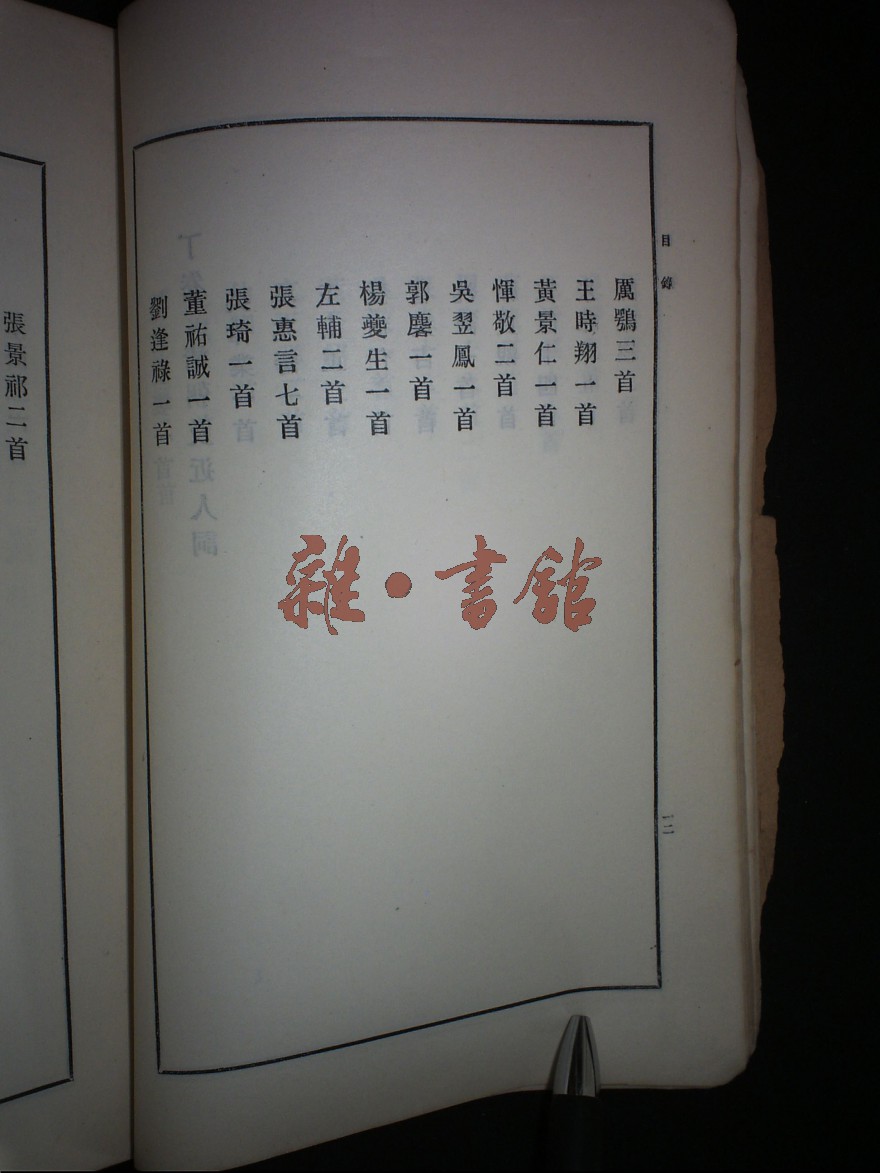 目錄
厲鶚三首
王時翔一首
黃景仁一首
惲敬二首
吳翌鳳一首
郭麐一首
楊夔生一首
左輔二首
張惠言七首
張琦一首
董祐誠一首
劉逢祿一首
一二
張景祁二首
雜·書館